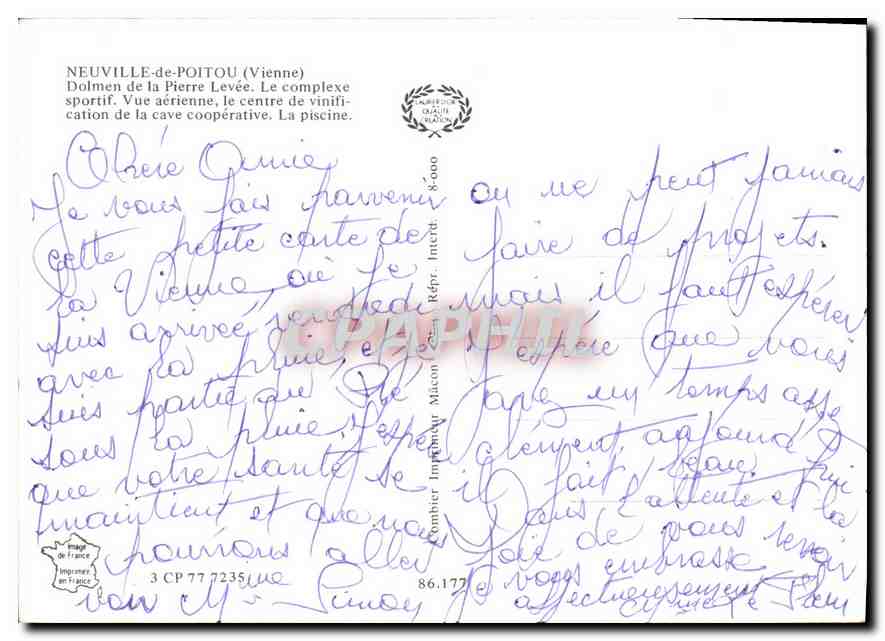 NEUVILLE-de-POITOU (Vienne)
Dolmen de la Pierre Levée. Le complexe
sportif. Vue aérienne, le centre de vinifi-
cation de la cave coopérative. La piscine.
LAURIER D'OR
DE LA
QUALITÉ
DE
CRÉATION
Chère Annie
Je vous fais parvenir
cette petite carte de
la Vienne, où je
suis arrivée vendredi
avec la pluie, et je
suis partie du
sous la pluie. J'espère
que votre santé se
maintient et que nous
pourrons aller
voir Mme Simon
on ne peut jamais
faire de projets.
mais il faut espérer
J'espère que vous
avez un temps assez
clément, aujourd'hui
il fait beau.
Dans l'attente et la
joie de vous revoir
Je vous embrasse
affectueusement
Combier Imprimeur Mâcon Repr. Interd. 8-000
CPAPHIL
Image
de France
Imprimée
en France
3 CP 77 7235
86.177